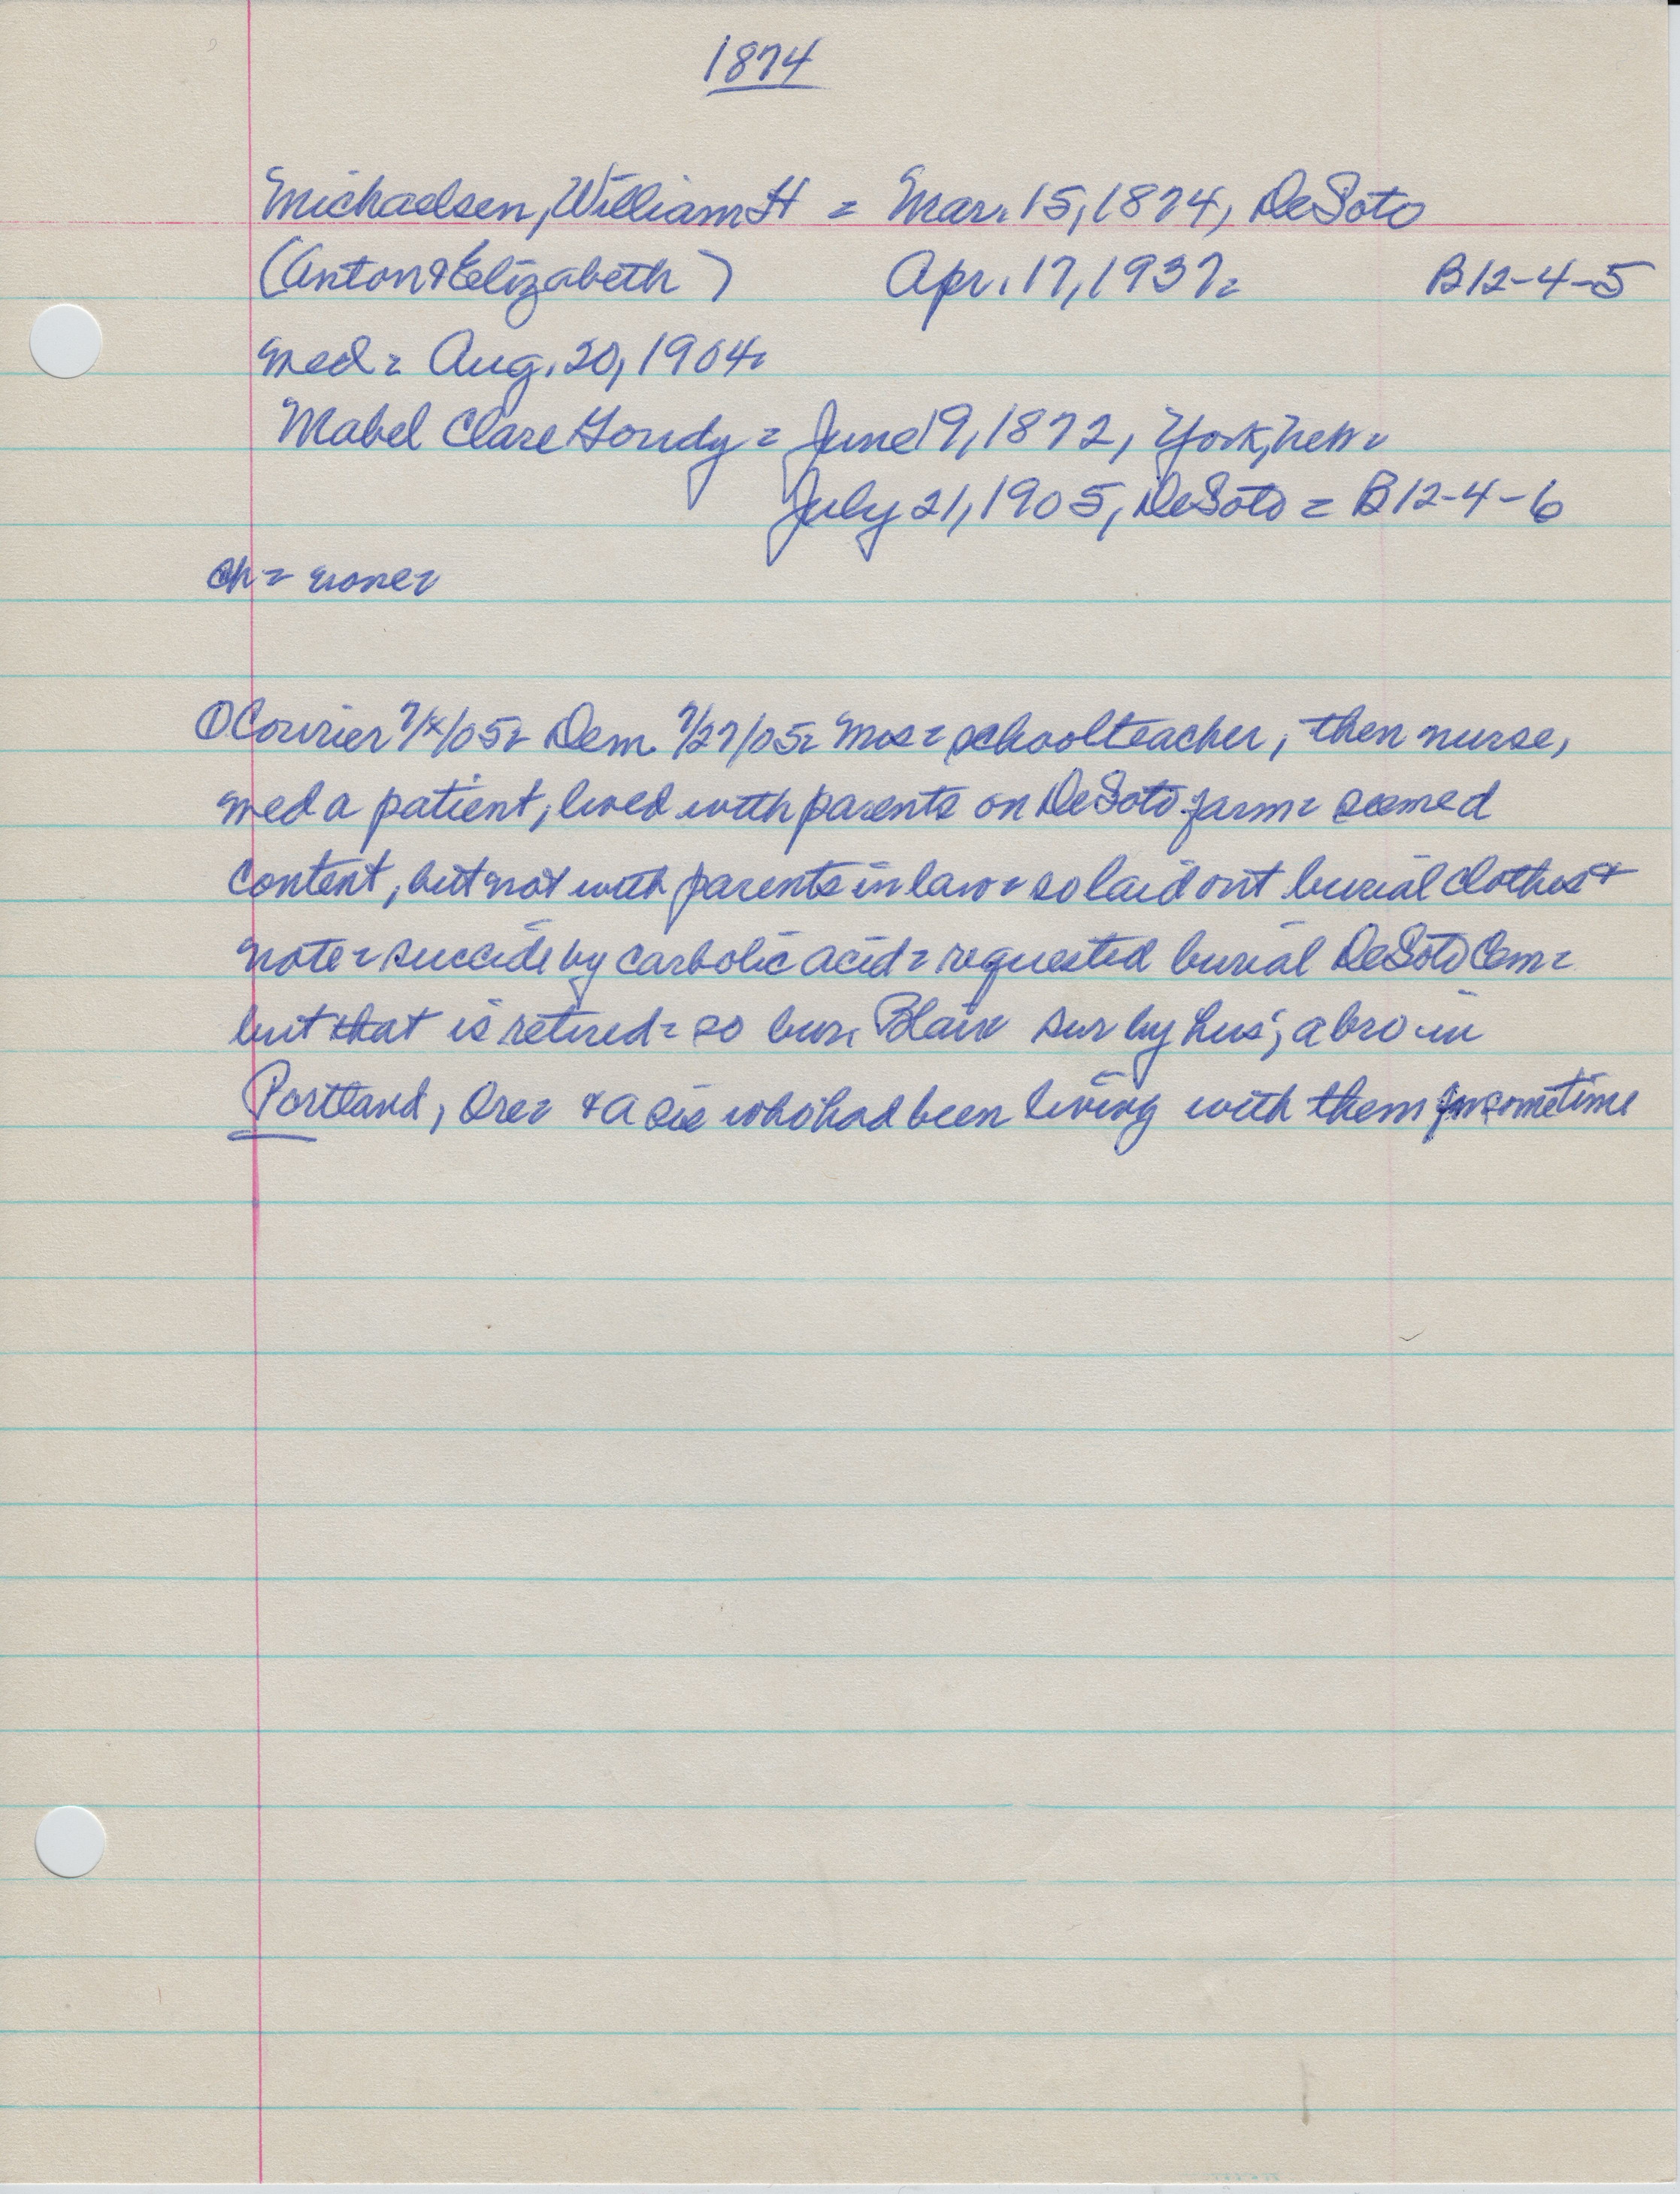 1874
Michaelsen, William H = Mar. 15, 1874, DeSoto
(Anton & Elizabeth) Apr. 17, 1937= B12-4-5
med = Aug. 20, 1904=
Mabel Clare Goudy = June 19, 1872, York, Neb=
July 21, 1905, DeSoto = B12-4-6
ch = none=
① Courier 7/x/05= Dem 7/27/05= Mrs = schoolteacher, then nurse,
med a patient, lived with parents on DeSoto farm= seemed
content, but not with parents in law= so laid out burial clothes &
note= suicide by carbolic acid= requested burial DeSoto Cem=
but that is retired= so bur. Blair sur by hus; a bro in
Portland, Ore= & a sis who had been living with them for sometime